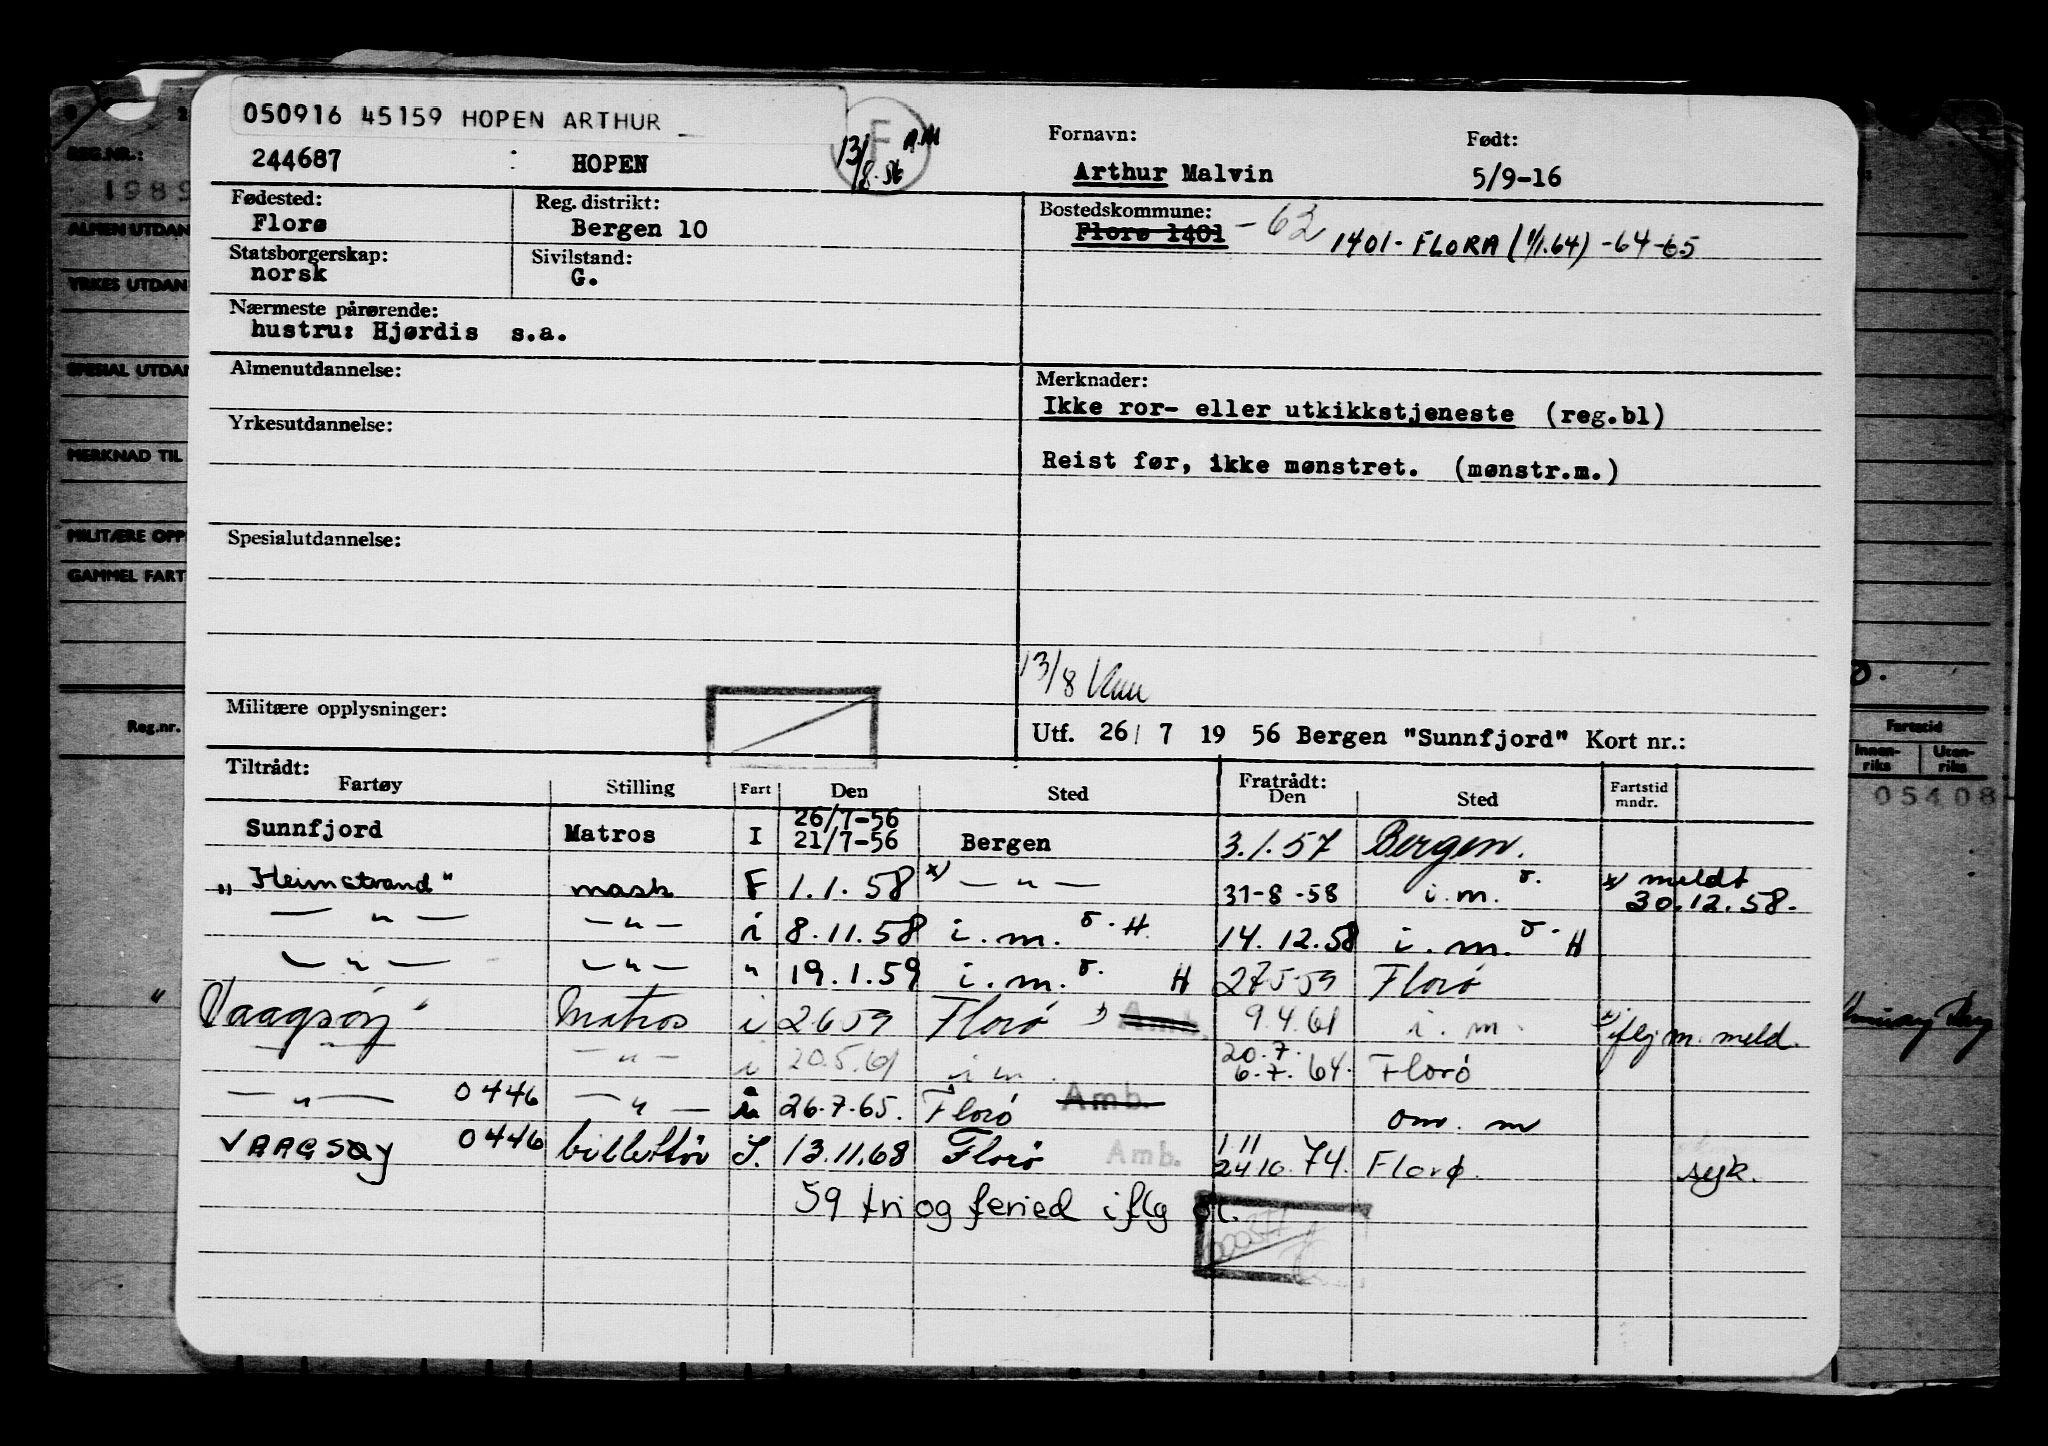 050916 45159 HOPEN ARTHUR
244687 : HOPEN
13/8-56
F
Fornavn: Født:
Arthur Malvin 5/9-16
REG.NR.:
1989
Fødested: Reg. distrikt: Bostedskommune:
Florø Bergen 10 Florø 1401 -62 1401- FLORA (1/1.64) -64-65
ALMEN UTDAN
Statsborgerskap: Sivilstand:
norsk G.
YRKES UTDAN
Nærmeste pårørende:
hustru: Hjørdis s.a.
SPESIAL UTDAN
Almenutdannelse: Merknader:
Ikke ror- eller utkikkstjeneste (reg.bl)
Yrkesutdannelse:
MERKNAD TIL
Reist før, ikke mønstret. (mønstr.m.)
MILITÆRE OPP
Spesialutdannelse:
GAMMEL FART
13/8
Militære opplysninger:
Utf. 26/ 7 19 56 Bergen "Sunnfjord" Kort nr.:
Reg.nr.
Fartstid
Innen-riks Uten-riks
05408
Tiltrådt: Fratrådt:
Fartøy Stilling Fart Den Sted Den Sted Fartstid mndr.
26/7-56
Sunnfjord Matros I 21/7-56 Bergen 3.1.57 Bergen.
"Heimstrand" mask F 1.1.58 x) — " — 31-8-58 i.m. x) meldt 30.12.58.
— " — — " — i 8.11.58 i.m. H 14.12.58 i.m. H
— " — — " — " 19.1.59 i.m. H 27 5 59 Florø
"Vaagsøy" Matros i 2 6 59 Florø Amb. 9.4.61 i.m. iflg m. meld.
— " — — " — i 20.5.61 i m. 20.7. 6.7.64. Florø
— " — 0446 — " — i 26.7.65. Florø Amb. om. m
VAAGSØY 0446 billettør I. 13.11.68 Florø Amb. 1 11 24 10. 74. Florø. syk.
59 fri og feried iflg